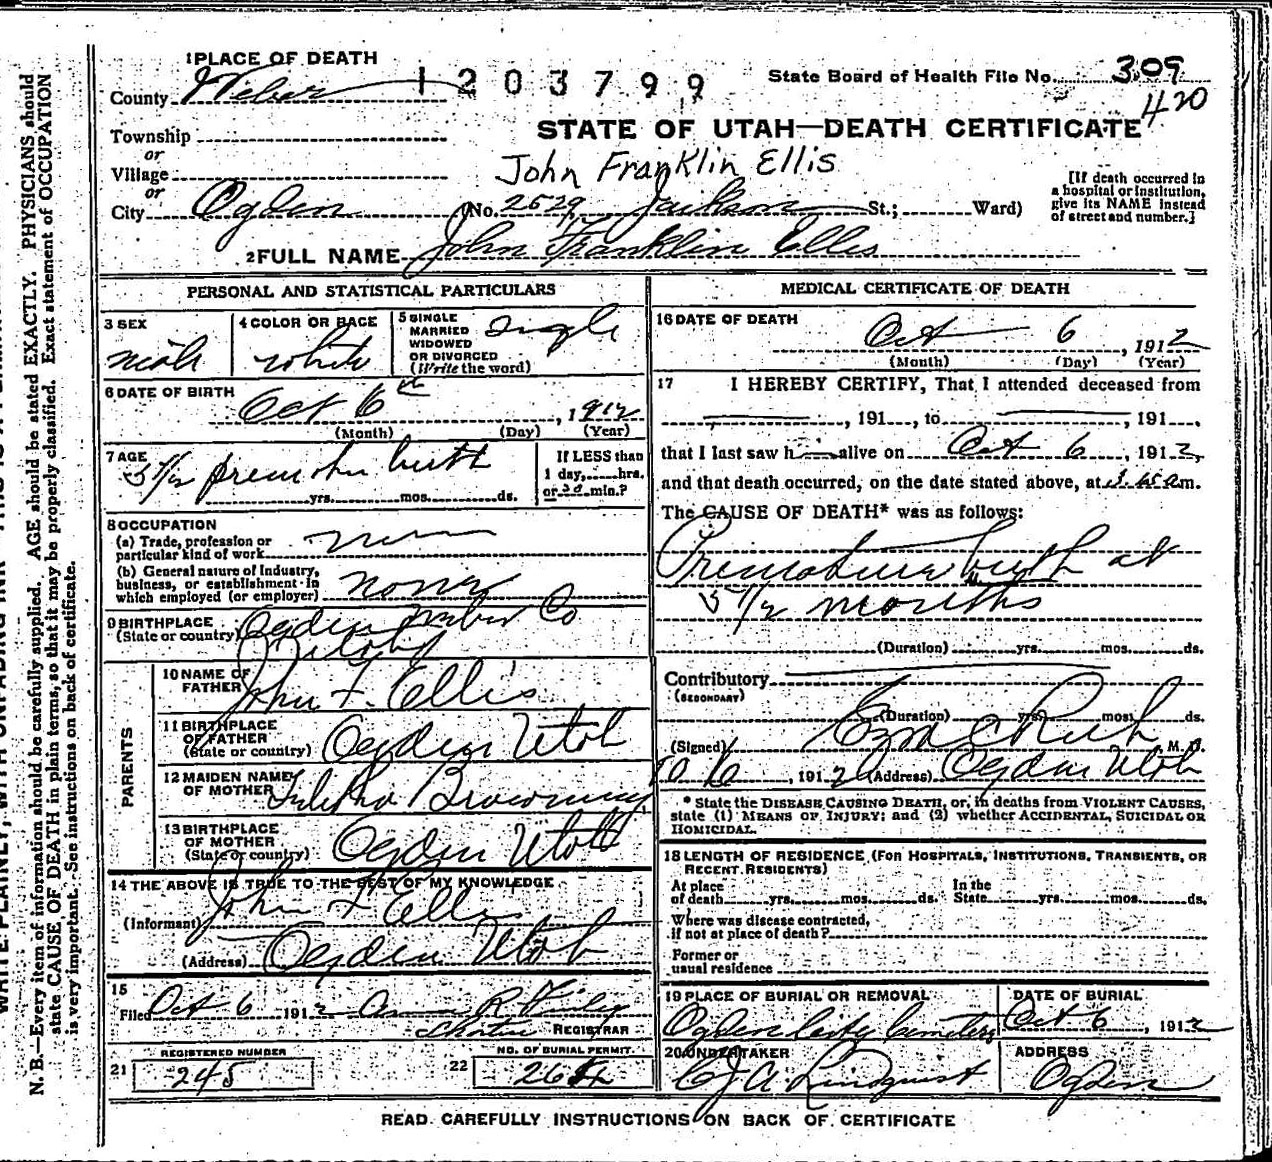 1 PLACE OF DEATH
County Weber
1203799
State Board of Health File No. 309
420
STATE OF UTAH—DEATH CERTIFICATE
Township
or
Village
or
John Franklin Ellis
City Ogden (No. 2529 Jackson St.; Ward)
[If death occurred in
a hospital or institution,
give its NAME instead
of street and number.]
2 FULL NAME John Franklin Ellis
PERSONAL AND STATISTICAL PARTICULARS
3 SEX
male
4 COLOR OR RACE
white
5 SINGLE
MARRIED
WIDOWED
OR DIVORCED
(Write the word)
Single
6 DATE OF BIRTH
Oct 6th, 1912
(Month) (Day) (Year)
7 AGE
5 1/2 premature birth
yrs. mos. ds.
If LESS than
1 day, hrs.
or 30 min.?
8 OCCUPATION
(a) Trade, profession or
particular kind of work
(b) General nature of Industry,
business, or establishment in
which employed (or employer)
9 BIRTHPLACE
(State or country)
Ogden Weber Co
Utah
PARENTS
10 NAME OF
FATHER
John F. Ellis
11 BIRTHPLACE
OF FATHER
(State or country)
Ogden Utah
12 MAIDEN NAME
OF MOTHER
Browning
13 BIRTHPLACE
OF MOTHER
(State or country)
Ogden Utah
14 THE ABOVE IS TRUE TO THE BEST OF MY KNOWLEDGE
(Informant) John F Ellis
(Address) Ogden Utah
15
Filed Oct 6 1912
REGISTRAR
REGISTERED NUMBER
21 245
NO. OF BURIAL PERMIT.
22
MEDICAL CERTIFICATE OF DEATH
16 DATE OF DEATH
Oct 6, 1912
(Month) (Day) (Year)
17 I HEREBY CERTIFY, That I attended deceased from
, 191 , to , 191 ,
that I last saw h alive on Oct 6, 1912,
and that death occurred, on the date stated above, at m.
The CAUSE OF DEATH* was as follows:
Premature birth at
5 1/2 months
(Duration) yrs. mos. ds.
Contributory
(SECONDARY)
(Duration) yrs. mos. ds.
(Signed) Ezra C Rich M. D.
10/6, 1912 (Address) Ogden Utah
* State the DISEASE CAUSING DEATH, or, in deaths from VIOLENT CAUSES,
state (1) MEANS OF INJURY; and (2) whether ACCIDENTAL, SUICIDAL OR
HOMICIDAL.
18 LENGTH OF RESIDENCE (FOR HOSPITALS, INSTITUTIONS, TRANSIENTS, OR
RECENT RESIDENTS)
At place
of death yrs. mos. ds.
In the
State yrs. mos. ds.
Where was disease contracted,
if not at place of death?
Former or
usual residence
19 PLACE OF BURIAL OR REMOVAL
Ogden City Cemetery
DATE OF BURIAL
Oct 6, 1912
20 UNDERTAKER
C J A Lindquist
ADDRESS
Ogden
READ CAREFULLY INSTRUCTIONS ON BACK OF CERTIFICATE
N. B.—Every item of information should be carefully supplied. AGE should be stated EXACTLY. PHYSICIANS should
state CAUSE OF DEATH in plain terms, so that it may be properly classified. Exact statement of OCCUPATION
is very important. See instructions on back of certificate.